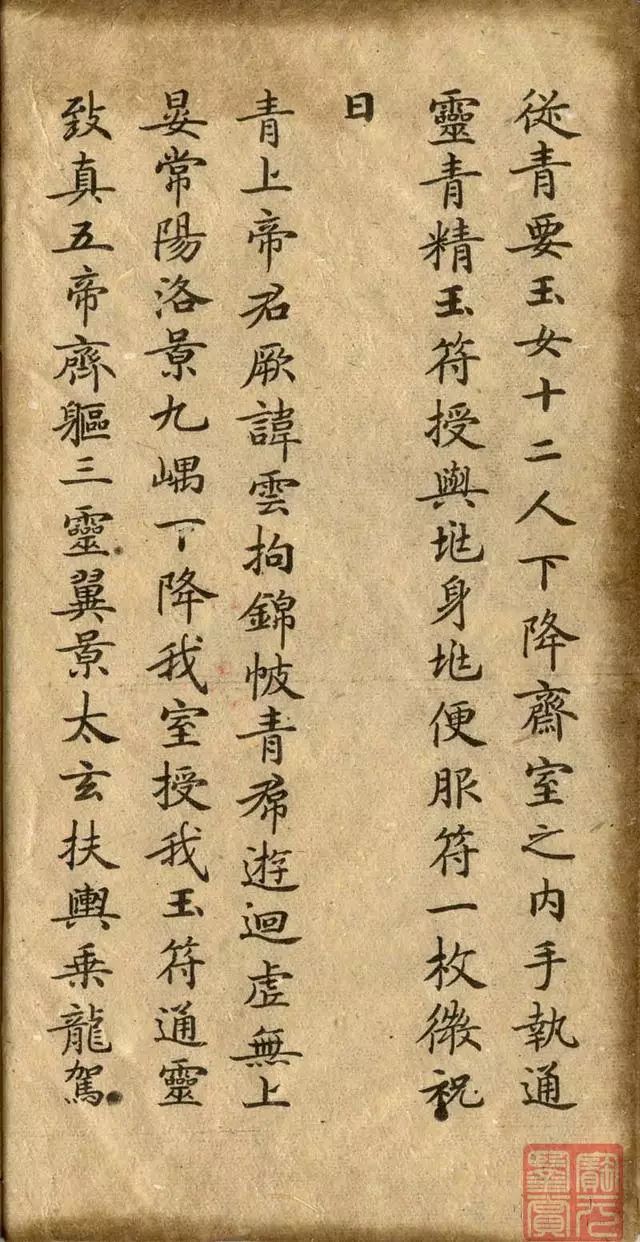 從青要玉女十二人下降齋室之內手執通
靈青精玉符授與兆身兆便服符一枚微祝
曰
青上帝君厥諱雲拘錦帔青帬遊迴虛無上
晏常陽洛景九嵎下降我室授我玉符通靈
致真五帝齊軀三靈翼景太玄扶輿乘龍駕